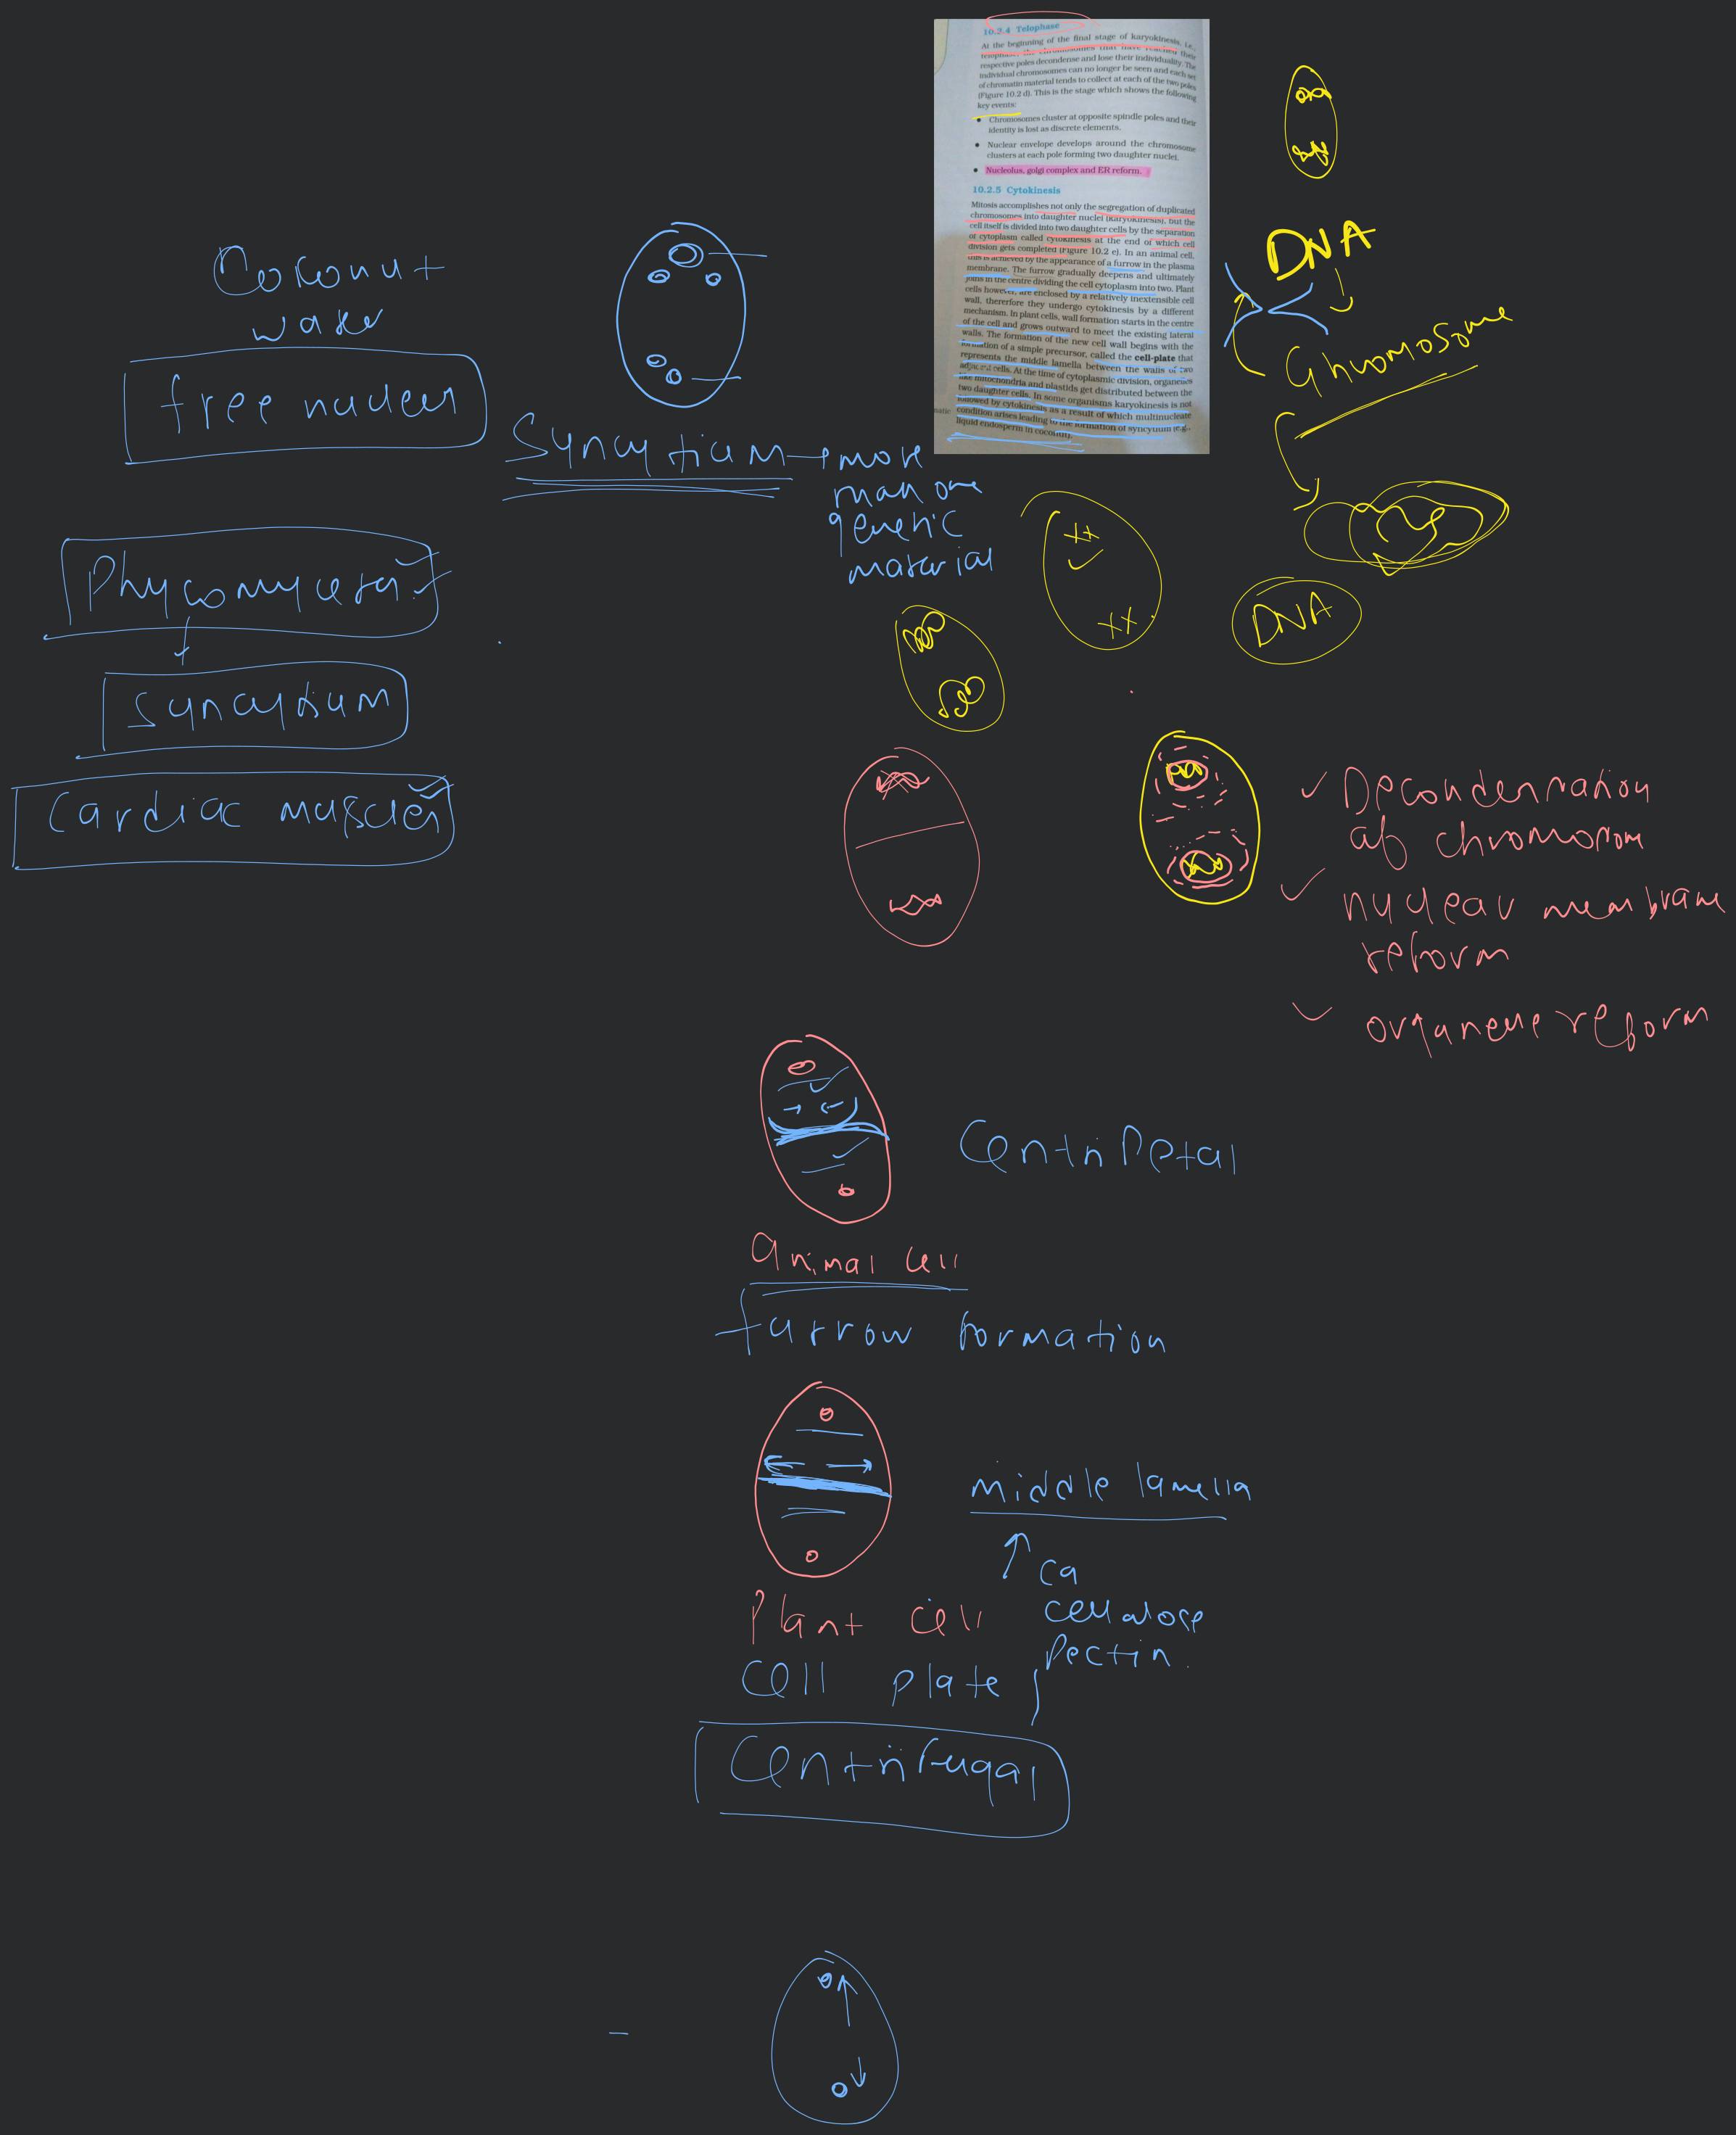 10.2.4 Telophase
At the beginning of the final stage of karyokinesis, i.e.,
telophase, the chromosomes that have reached their
respective poles decondense and lose their individuality. The
individual chromosomes can no longer be seen and each set
of chromatin material tends to collect at each of the two poles
(Figure 10.2 d). This is the stage which shows the following
key events:
• Chromosomes cluster at opposite spindle poles and their
identity is lost as discrete elements.
• Nuclear envelope develops around the chromosome
clusters at each pole forming two daughter nuclei.
• Nucleolus, golgi complex and ER reform.
10.2.5 Cytokinesis
Mitosis accomplishes not only the segregation of duplicated
chromosomes into daughter nuclei (karyokinesis), but the
cell itself is divided into two daughter cells by the separation
of cytoplasm called cytokinesis at the end of which cell
division gets completed (Figure 10.2 e). In an animal cell,
this is achieved by the appearance of a furrow in the plasma
membrane. The furrow gradually deepens and ultimately
joins in the centre dividing the cell cytoplasm into two. Plant
cells however, are enclosed by a relatively inextensible cell
wall, thererfore they undergo cytokinesis by a different
mechanism. In plant cells, wall formation starts in the centre
of the cell and grows outward to meet the existing lateral
walls. The formation of the new cell wall begins with the
formation of a simple precursor, called the cell-plate that
represents the middle lamella between the walls of two
adjacent cells. At the time of cytoplasmic division, organelles
like mitochondria and plastids get distributed between the
two daughter cells. In some organisms karyokinesis is not
followed by cytokinesis as a result of which multinucleate
condition arises leading to the formation of syncytium (e.g.,
liquid endosperm in coconut).
matic
DNA
Chromosome
DNA
Coconut
water
free nuclear
Syncytium → more
than one
genetic
material
Phycomycetes
Syncytium
Cardiac muscles
Decondensation
of chromosome
nuclear membrane
reform
organelle reform
Centripetal
Animal cell
furrow formation
middle lamella
Ca
cellulose
Pectin.
Plant cell
Cell plate
Centrifugal